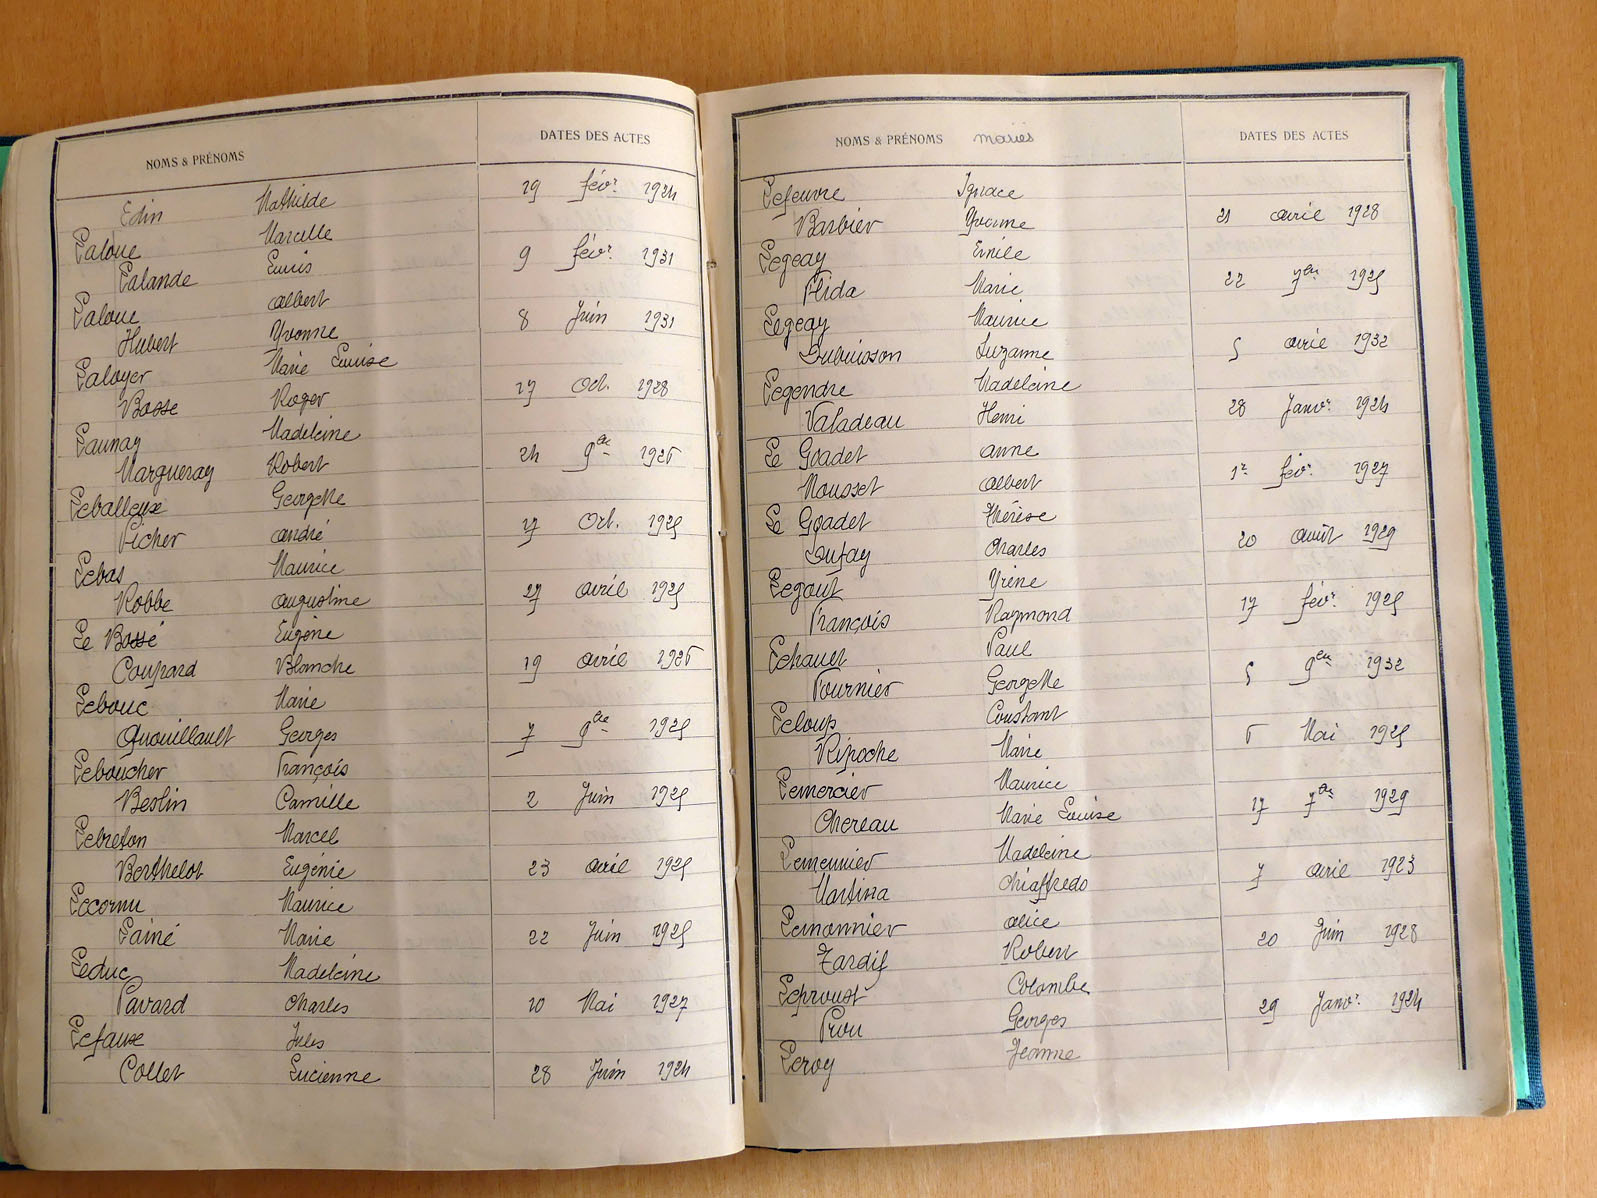 NOMS & PRÉNOMS DATES DES ACTES
Edin Mathilde 19 févr. 1924
Laloue Marcelle
Lalande Louis 9 févr. 1931
Laloue Albert
Hubert Yvonne 8 Juin 1931
Laloyer Marie Louise
Bosse Roger 17 Oct. 1928
Launay Madeleine
Margueray Robert 24 9bre 1926
Leballeux Georgette
Picher André 17 Oct. 1925
Lebas Maurice
Robbe Augustine 27 avril 1925
Le Bossé Eugène
Coupard Blanche 19 avril 1926
Lebouc Marie
Quouillault Georges 7 9bre 1925
Leboucher François
Beslin Camille 2 Juin 1925
Lebreton Marcel
Berthelot Eugénie 23 avril 1925
Lecornu Maurice
Lainé Marie 22 Juin 1925
Leduc Madeleine
Pavard Charles 10 Mai 1927
Lefaux Jules
Collet Lucienne 28 Juin 1924
NOMS & PRÉNOMS mariés DATES DES ACTES
Lefeuvre Ignace
Barbier Yvonne 21 avril 1928
Legeay Emile
Flida Marie 22 7bre 1925
Legeay Maurice
Dubuisson Suzanne 5 avril 1932
Legendre Madeleine
Valadeau Henri 28 Janvr. 1924
Le Goadet Anne
Mousset Albert 1er févr. 1927
Le Goadet Thérèse
Dufay Charles 20 août 1929
Legout Yrène
François Raymond 17 févr. 1925
Lehault Paul
Fournier Georgette 5 9bre 1932
Leloup Constant
Ripoche Marie 6 Mai 1925
Lemercier Maurice
Chereau Marie Louise 17 7bre 1929
Lemeunier Madeleine
Martina Chiaffredo 7 avril 1923
Lemonnier Alice
Tardif Robert 20 Juin 1928
Leproust Colombe
Prou Georges 29 Janvr. 1924
Leroy Jeanne